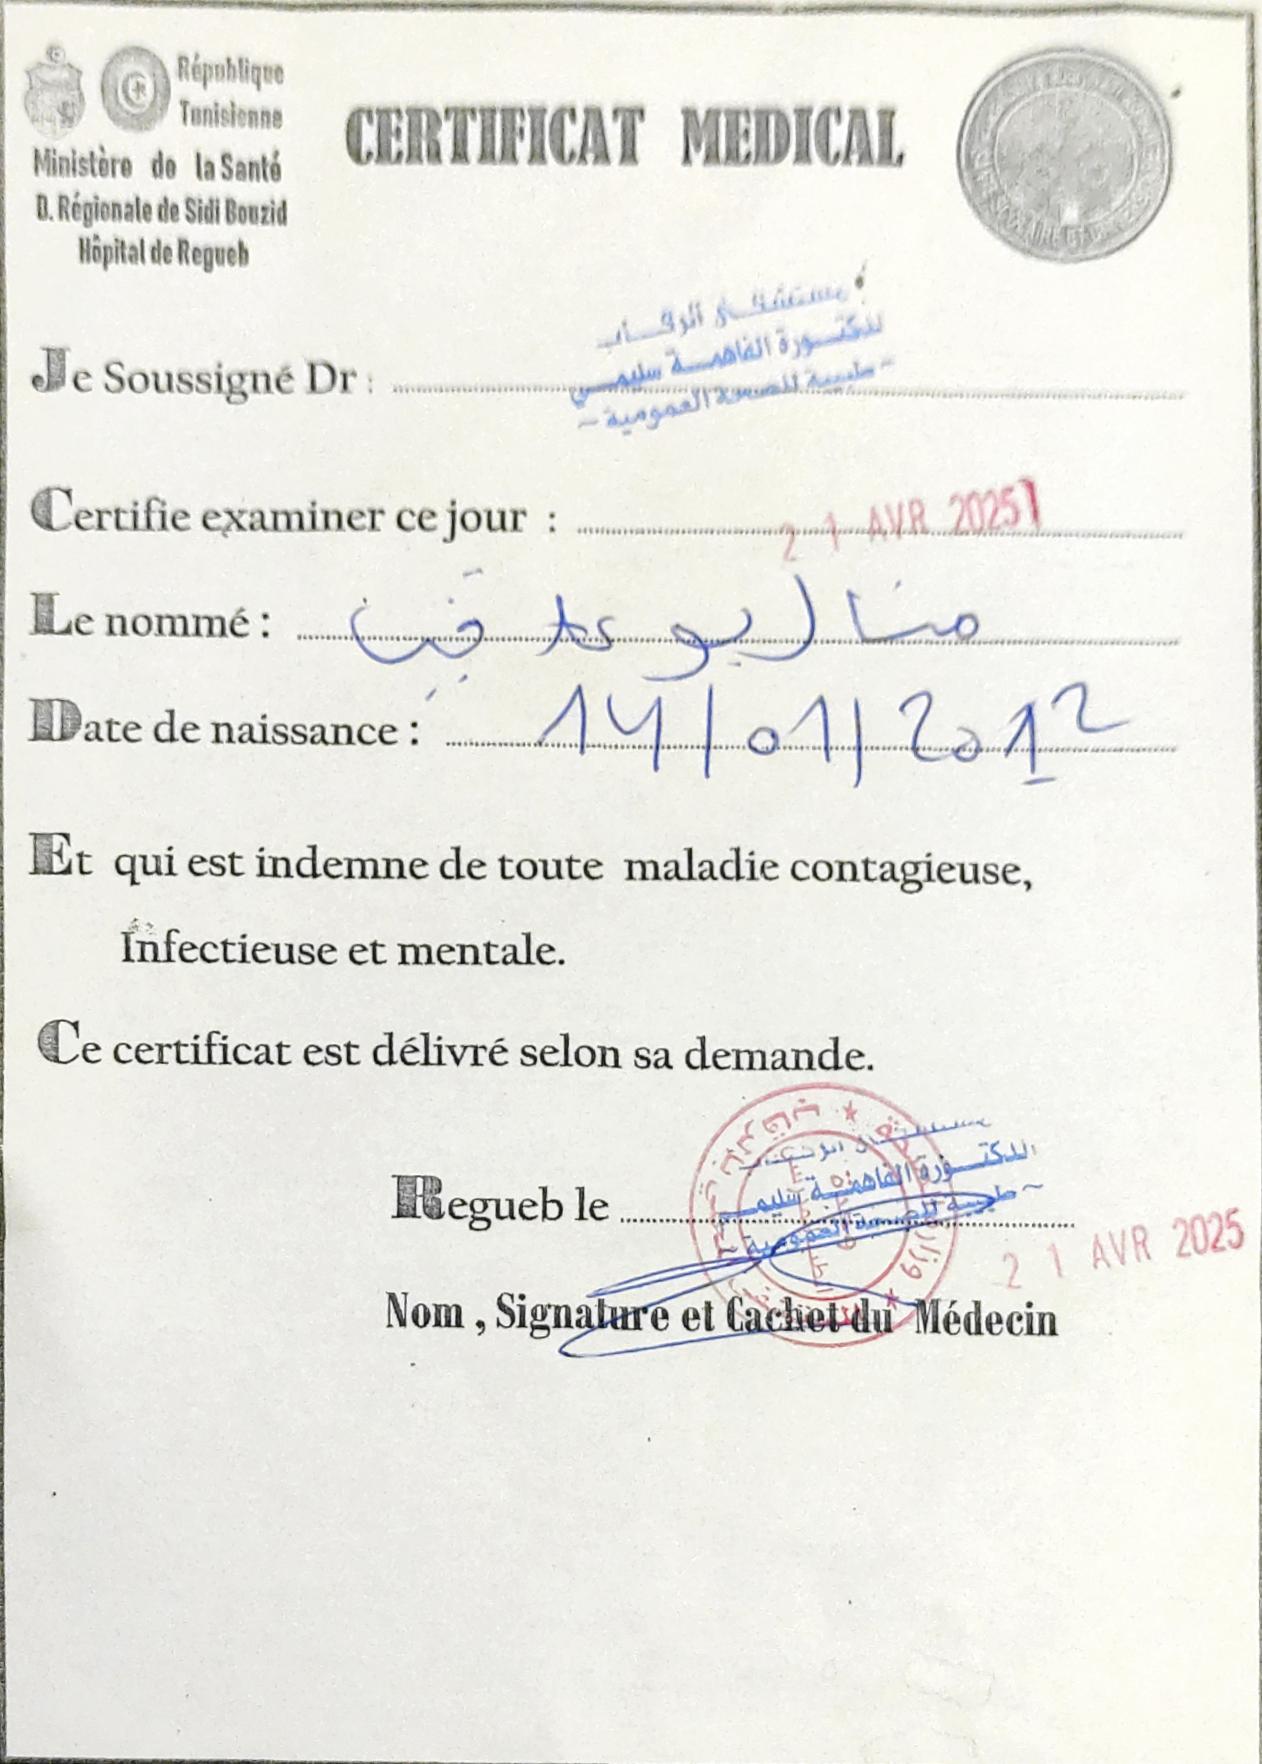 République
Tunisienne
Ministère de la Santé
D. Régionale de Sidi Bouzid
Hôpital de Regueb
CERTIFICAT MEDICAL
مستشفى الرقاب
الدكتورة الفاهمة سليمي
- طبيبة للصحة العمومية -
Je Soussigné Dr :
Certifie examiner ce jour : 21 AVR 2025
Le nommé : منال بو
Date de naissance : 14/01/2012
Et qui est indemne de toute maladie contagieuse,
Infectieuse et mentale.
Ce certificat est délivré selon sa demande.
مستشفى الرقاب
الدكتورة الفاهمة سليمي
- طبيبة للصحة العمومية -
Regueb le 21 AVR 2025
Nom , Signature et Cachet du Médecin